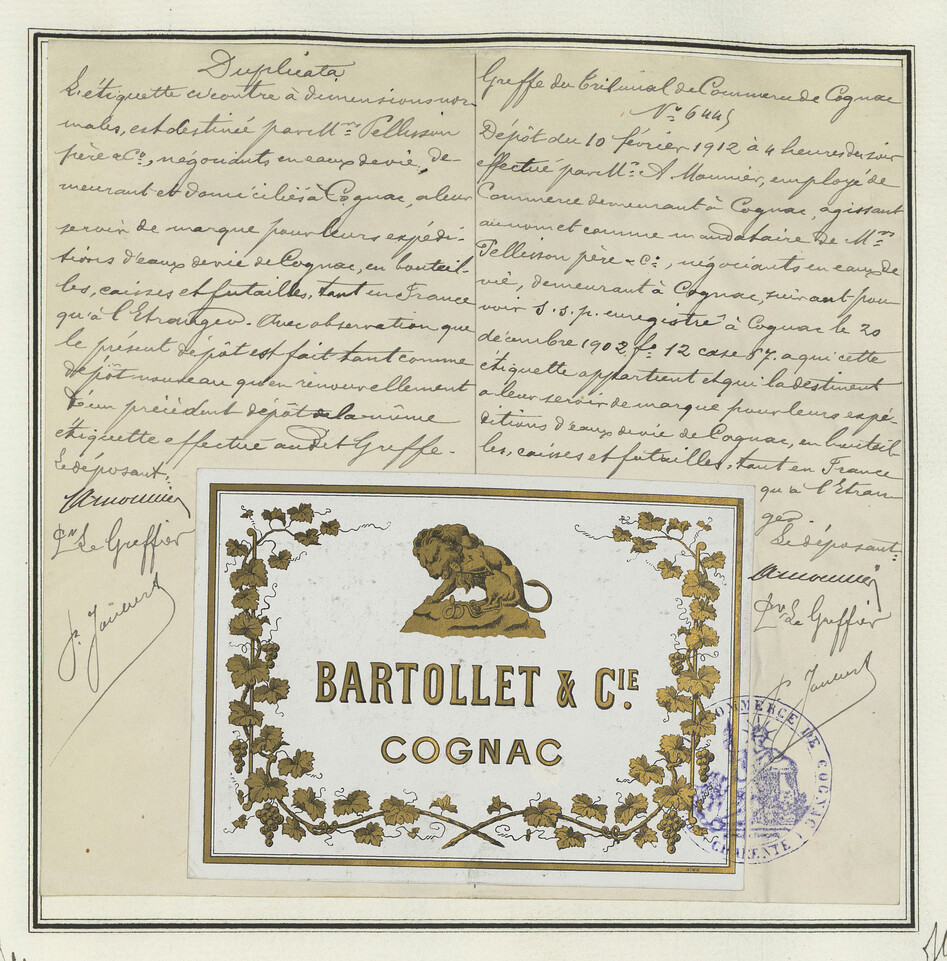 Duplicata
L'étiquette ci contre à dimensions nor
males, est destinée par Mrs Pellisson
père & Co, négociants en eaux de vie, de
meurant et domiciliés à Cognac, a leur
servir de marque pour leurs expédi-
tions d'eaux de vie de Cognac, en bouteil-
les, caisses et futailles, tant en France
qu'à l'Etranger. Avec observation que
le present dépôt est fait tant comme
dépôt nouveau qu'en renouvellement
d'un précédent dépôt de la même
étiquette effectué audit Greffe.
Le déposant:
Amounier
Pr Le Greffier
Greffe du Tribunal de Commerce de Cognac
No 6445
Dépôt du 10 février 1912 à 4 heures du soir
effectué par Mr. A Mounier, employé de
Commerce demeurant à Cognac, agissant
au nom et comme mandataire de Mrs
Pellisson père & Co, négociants en eaux de
vie, demeurant à Cognac, suivant pou
voir s.s.p. enregistré à Cognac le 20
décembre 1902 fo 12 case 87. a qui cette
étiquette appartient et qui la destinent
a leur servir de marque pour leurs expé-
ditions d'eaux de vie de Cognac, en bouteil-
les, caisses et futailles, tant en France
qu'à l'Etran
ger.
Le déposant:
Amounier
Pr Le Greffier
BARTOLLET & CIE.
COGNAC
COMMERCE DE COGNAC
CHARENTE